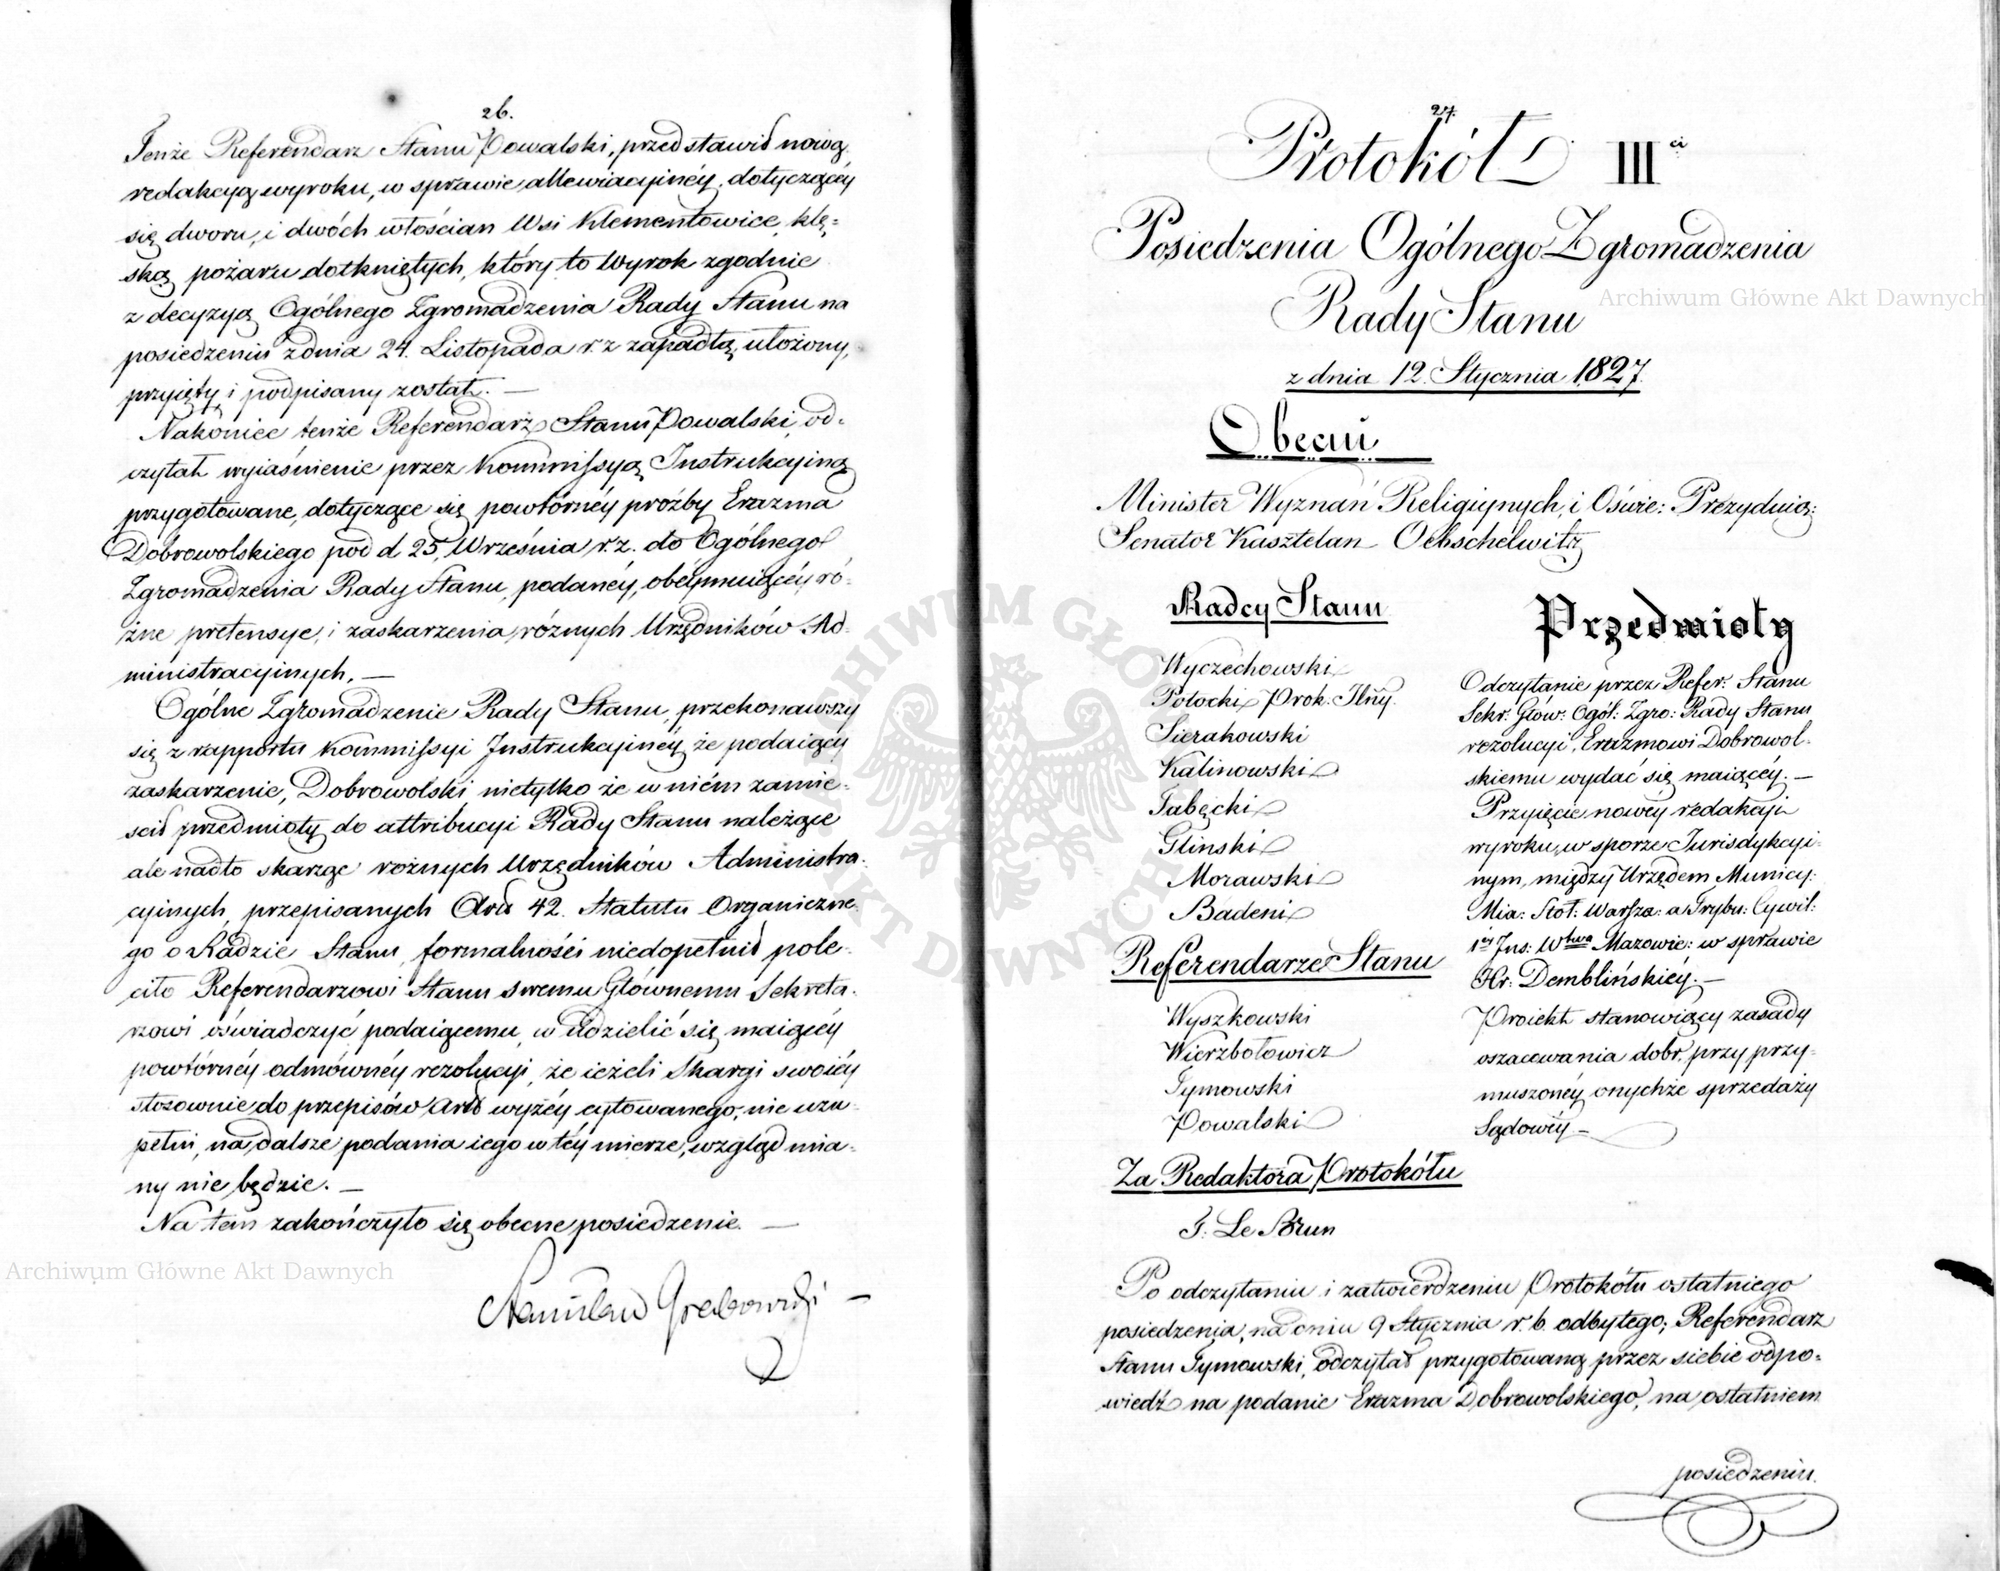 26.
Tenże Referendarz Stanu Powalski, przedstawił nową
redakcyą wyroku, w sprawie allewiacyinéy, dotyczącéy
się dworu, i dwóch włościan Wsi Klementowice, klę-
ską pożaru dotkniętych, który to Wyrok zgodnie
z decyzyą Ogólnego Zgromadzenia Rady Stanu na
posiedzeniu z dnia 24. Listopada r. z zapadłą, ułożony,
przyięty i podpisany został. —
Nakoniec tenże Referendarz Stanu Powalski, od-
czytał wyiaśnienie przez Kommissyą Instrukcyiną
przygotowane, dotyczące się powtórnéy proźby Erazma
Dobrowolskiego pod d 25, Września r. z. do Ogólnego
Zgromadzenia Rady Stanu, podanéy, obéymuiącéy ró-
żne pretensye, i zaskarzenia różnych Urzędników Ad-
ministracyinych. —
Ogólne Zgromadzenie Rady Stanu, przekonawszy
się z rapportu Kommissyi Instrukcyinéy że podaiący
zaskarzenie, Dobrowolski nietylko że w niém zamie-
scił przedmioty do attribucyi Rady Stanu należące
ale nadto skarżąc różnych Urzędników Administra-
cyinych, przepisanych Artł 42. Statutu Organiczne-
go o Radzie Stanu, formalności niedopełnił pole-
ciło Referendarzowi Stanu swemu Głównemu Sekreta-
rzowi oświadczyć podaiącemu, w udzielić się maiącéy
powtórnéy odmównéy rezolucyi, że ieżeli Skargi swoiéy
stosownie do przepisów Artł wyżéy cytowanego, nie uzu-
pełni, na dalsze podania iego w téy mierze, wzgląd mia-
ny nie będzie. —
Na tém zakończyło się obecne posiedzenie. —
Stanisław Grabowski —
27.
Protokół III ci
Posiedzenia Ogólnego Zgromadzenia
Rady Stanu
z dnia 12. Stycznia 1827.
Obecni
Minister Wyznań Religiynych, i Oświe: Prezyduią:
Senator Kasztelan Oebschelwitz
Radcy Stanu
Wyczechowski
Potocki Prok. Jlny.
Sierakowski
Kalinowski
Tabęcki
Gliński
Morawski
Badeni
Referendarze Stanu
Wyszkowski
Wierzbołowicz
Tymowski
Powalski
Za Redaktora Protokółu
F: Le Brun
Przedmioty
Odczytanie przez Refer: Stanu
Sekr: Głów: Ogól: Zgro: Rady Stanu
rezolucyi, Erazmowi Dobrowol-
skiemu wydać się maiącéy. —
Przyięcie nowéy redakcyi
wyroku, w sporze Jurisdykcyi-
nym, między Urzędem Municy:
Mia: Stoł: Warsza: a Trybu: Cywil:
1éj Ins: Wtwa Mazowie: w sprawie
Hr: Demblińskiéy. —
Proiekt stanowiący zasady
oszacowania dobr, przy przy-
muszonéy onychże sprzedaży
Sądowéy —
Po odczytaniu i zatwierdzeniu Protokółu ostatniego
posiedzenia, na dniu 9 Stycznia r. b. odbytego; Referendarz
Stanu Tymowski, odczytał przygotowaną przez siebie odpo-
wiedź na podanie Erazma Dobrowolskiego, na ostatniem
posiedzeniu.
Archiwum Główne Akt Dawnych
Archiwum Główne Akt Dawnych
ARCHIWUM GŁÓWNE
AKT DAWNYCH